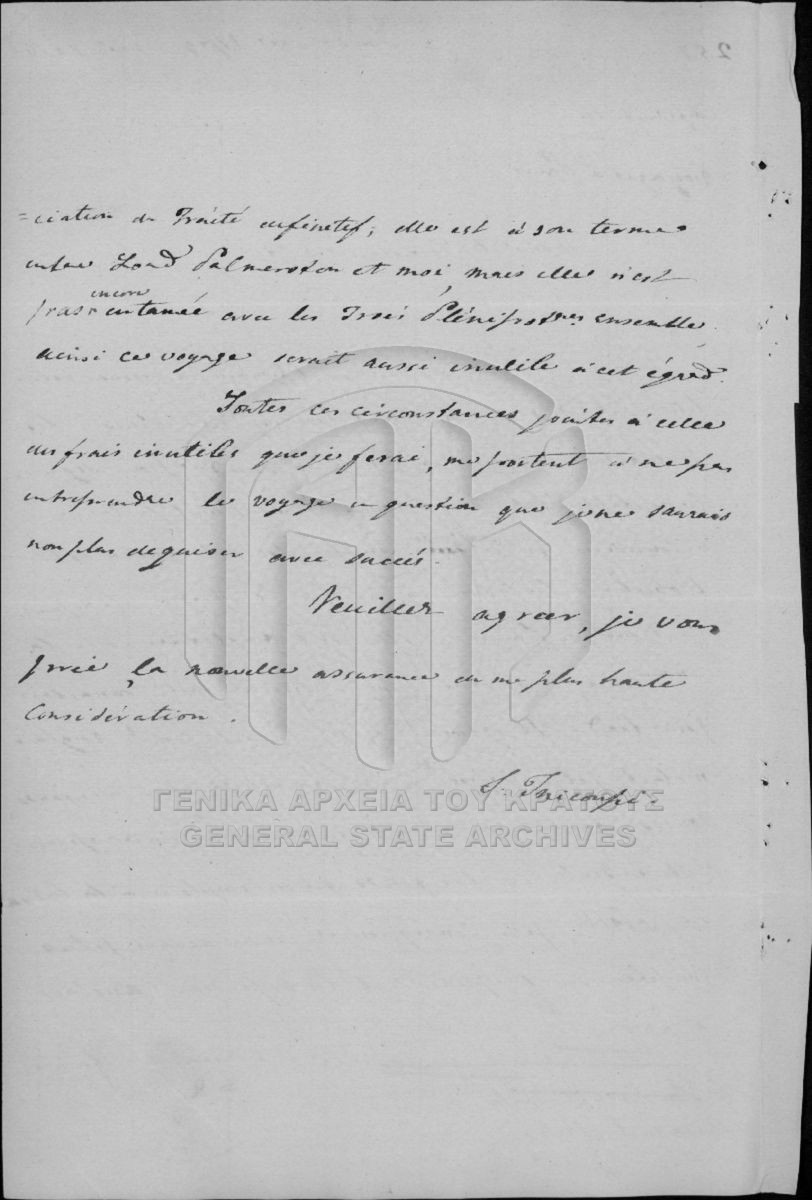 =ciation du Traité définitif; elle est à son terme
entre Lord Palmerston et moi, mais elle n'est
encore
pas entamée avec les Trois Plénipotres ensemble
ainsi ce voyage serait aussi inutile à cet égard.
Toutes ces circonstances jointes à celle
des frais inutiles que je ferai, me portent à ne pas
entreprendre le voyage en question que je ne saurais
non plus deguiser avec succés.
Veuillez agréer, je vous
prie, la nouvelle assurance de ma plus haute
Considération.
S. Tricoupi.
ΓΕΝΙΚΑ ΑΡΧΕΙΑ ΤΟΥ ΚΡΑΤΟΥΣ
GENERAL STATE ARCHIVES